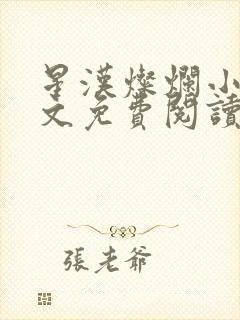 星漢燦爛小
文免費閱讀
張老爺